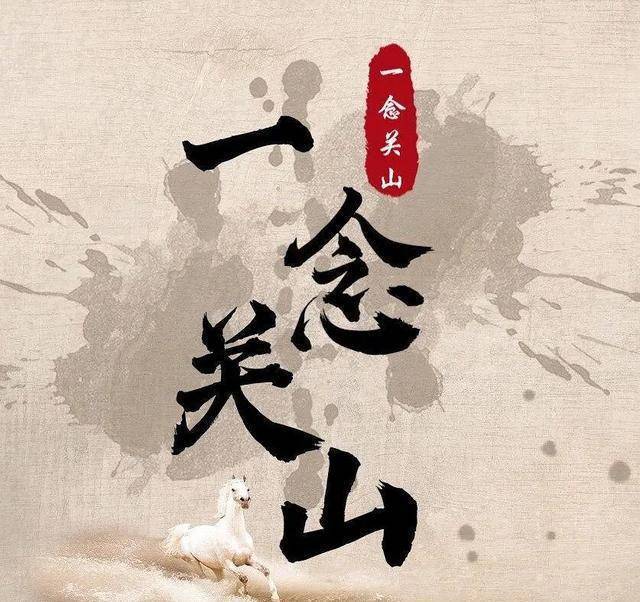 一念关山
一念关山